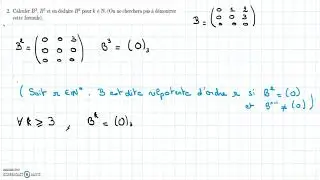 2. Calculer B², B³ et en déduire Bᵏ pour k ∈ ℕ. (On ne cherchera pas à démontrer
cette formule).
B = ( 0 1 2
0 0 3
0 0 0 )
B² = ( 0 0 3
0 0 0
0 0 0 )   B³ = (0)₃
( Soit r ∈ ℕ*. B est dite nilpotente d'ordre r si Bʳ = (0)
et Bʳ⁻¹ ≠ (0) )
∀ k ⩾ 3 , Bᵏ = (0)₃